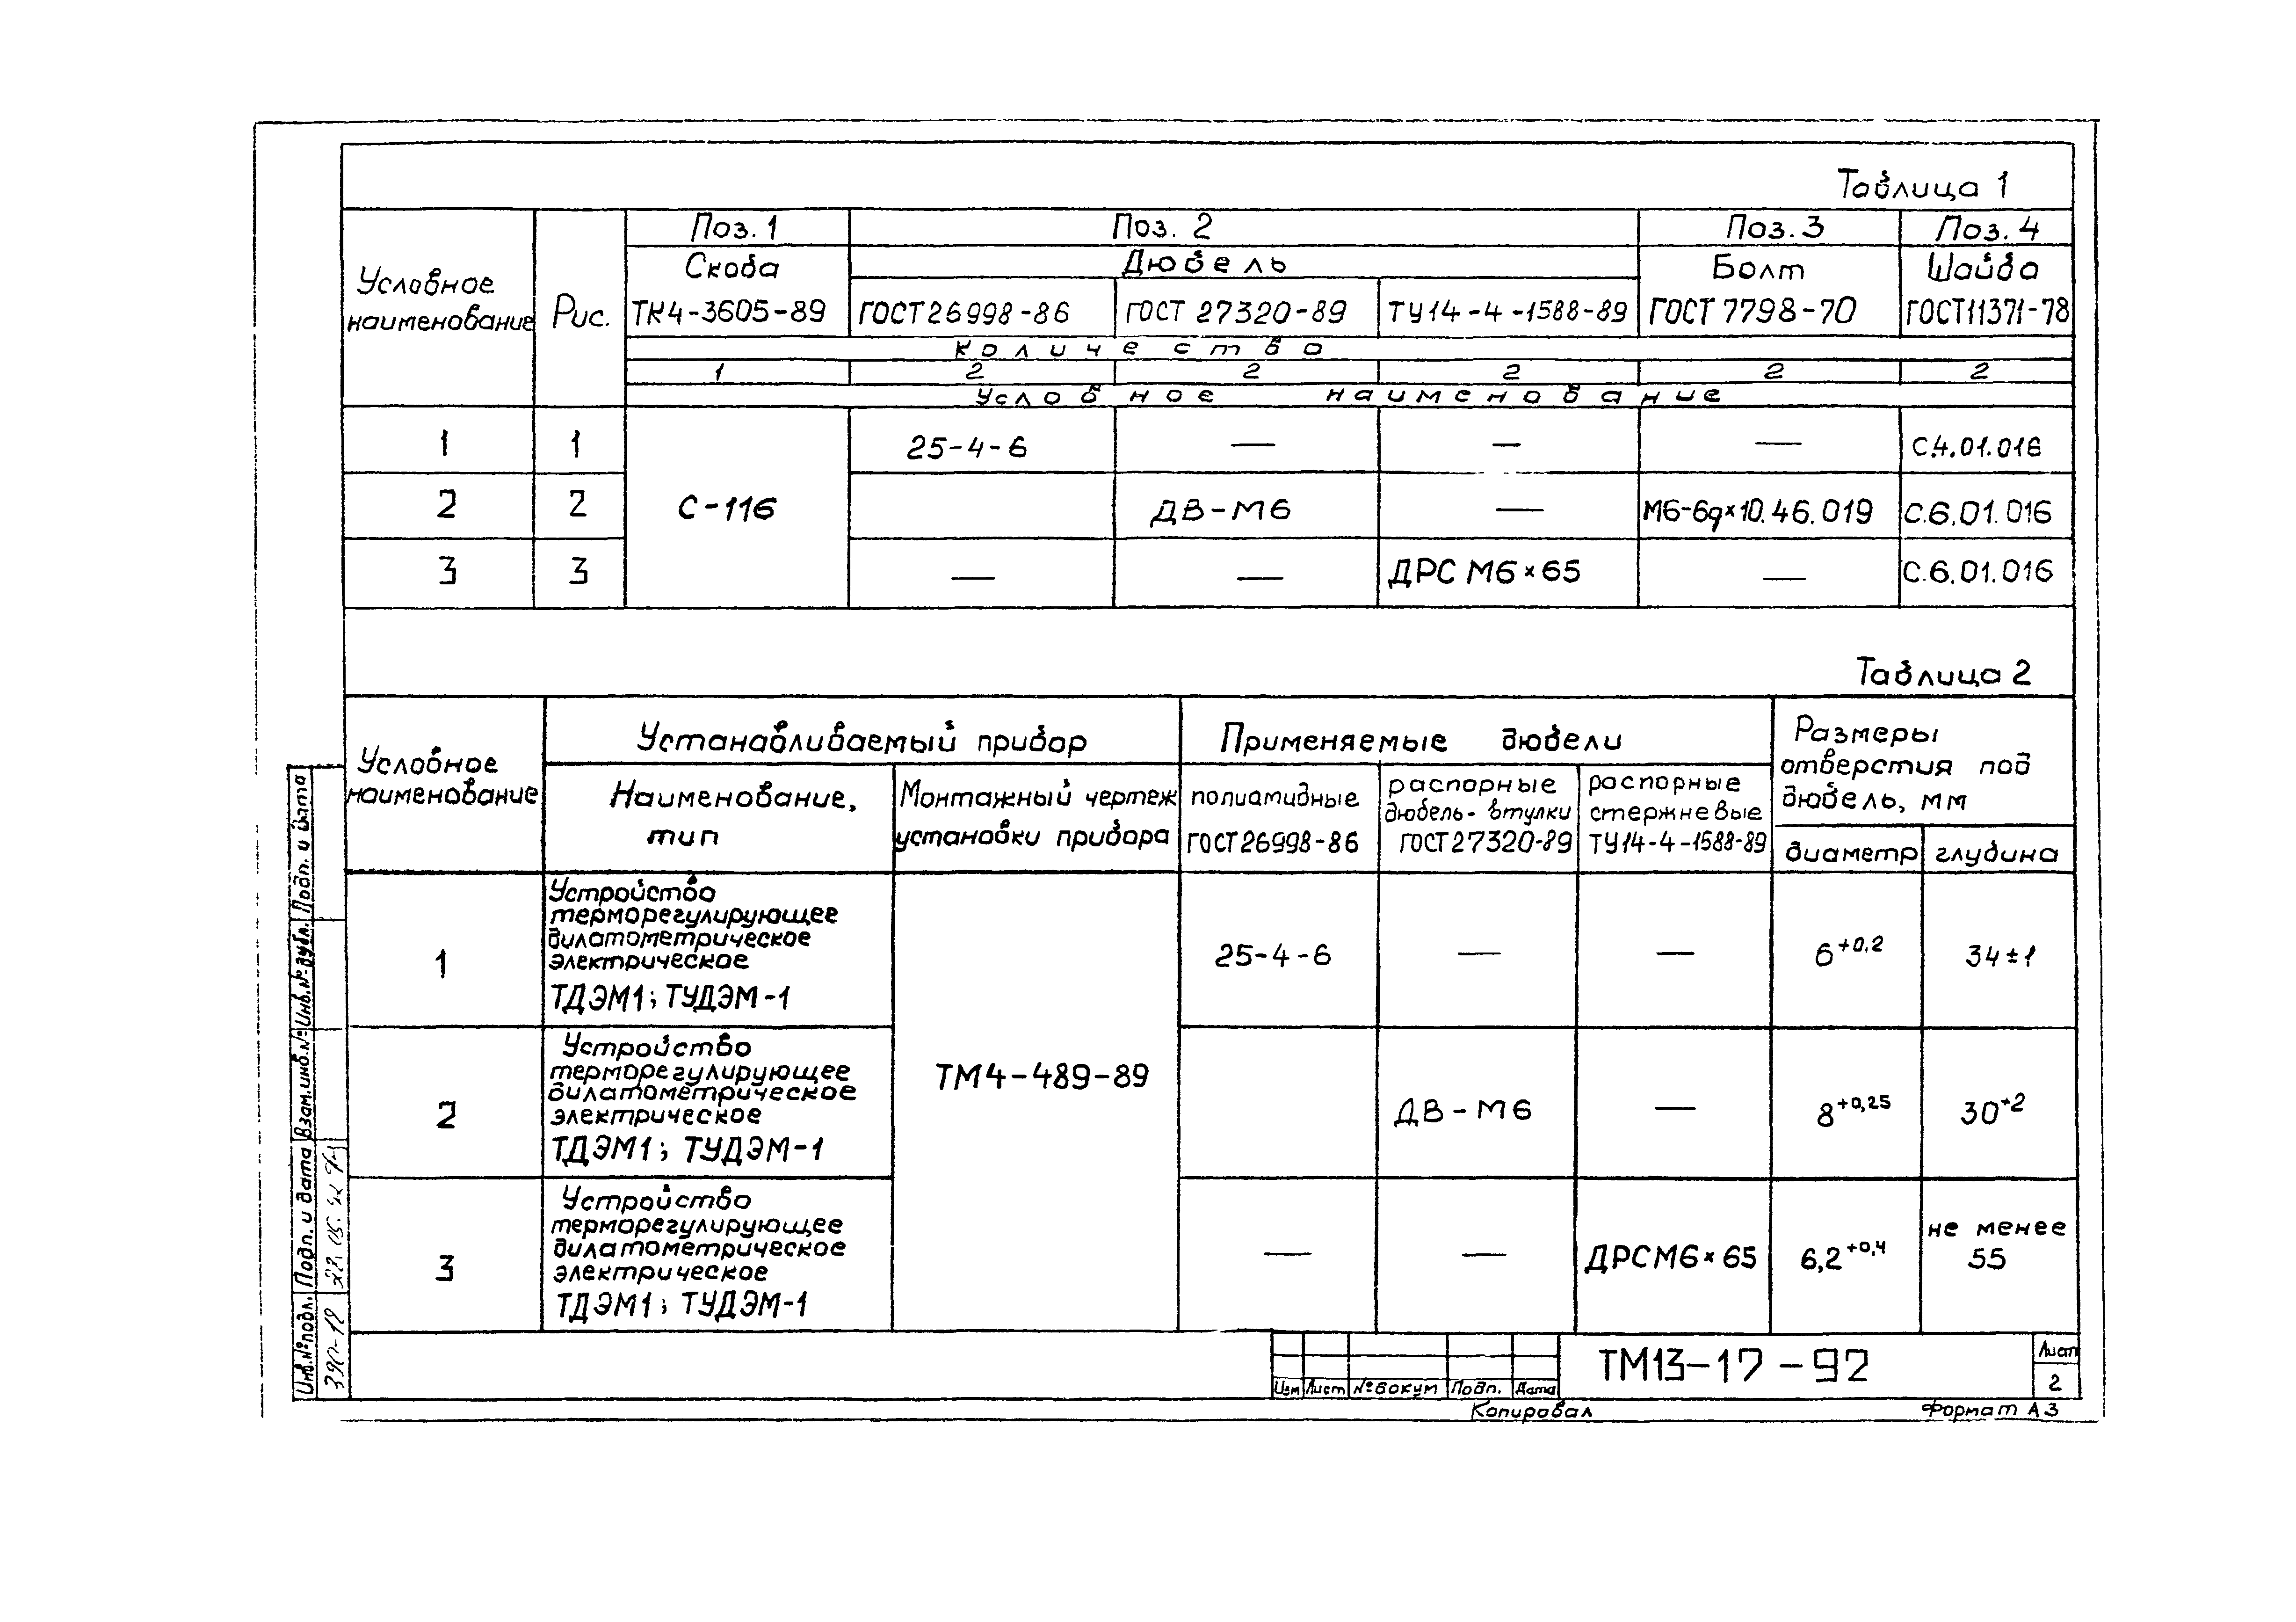 Таблица 1
Условное наименование
Рис.
Поз. 1
Поз. 2
Поз. 3
Поз. 4
Скоба
Дюбель
Болт
Шайба
ТК4-3605-89
ГОСТ26998-86
ГОСТ 27320-89
ТУ14-4-1588-89
ГОСТ 7798-70
ГОСТ11371-78
Количество
1 2 2 2 2 2
Условное наименование
1 1 25-4-6 — — — С.4.01.016
2 2 С-116 ДВ-М6 — М6-6g×10.46.019 С.6.01.016
3 3 — — ДРС М6×65 — С.6.01.016
Таблица 2
Условное наименование
Устанавливаемый прибор
Применяемые дюбели
Размеры
отверстия под
дюбель, мм
Наименование,
тип
Монтажный чертеж
установки прибора
полиамидные
ГОСТ26998-86
распорные
дюбель-втулки
ГОСТ27320-89
распорные
стержневые
ТУ14-4-1588-89
диаметр
глубина
1
Устройство
терморегулирующее
дилатометрическое
электрическое
ТДЭМ1; ТУДЭМ-1
25-4-6 — — 6+0,2 34±1
2
Устройство
терморегулирующее
дилатометрическое
электрическое
ТДЭМ1; ТУДЭМ-1
ТМ4-489-89
ДВ-М6 — 8+0,25 30+2
3
Устройство
терморегулирующее
дилатометрическое
электрическое
ТДЭМ1; ТУДЭМ-1
— — ДРСМ6×65 6,2+0,4
не менее
55
Изм Лист № докум Подп. Дата
ТМ13-17-92
Лист
2
Копировал
Формат А3
Инв.№подл. Подп. и дата Взам.инв.№ Инв.№дубл. Подп. и дата
390-12